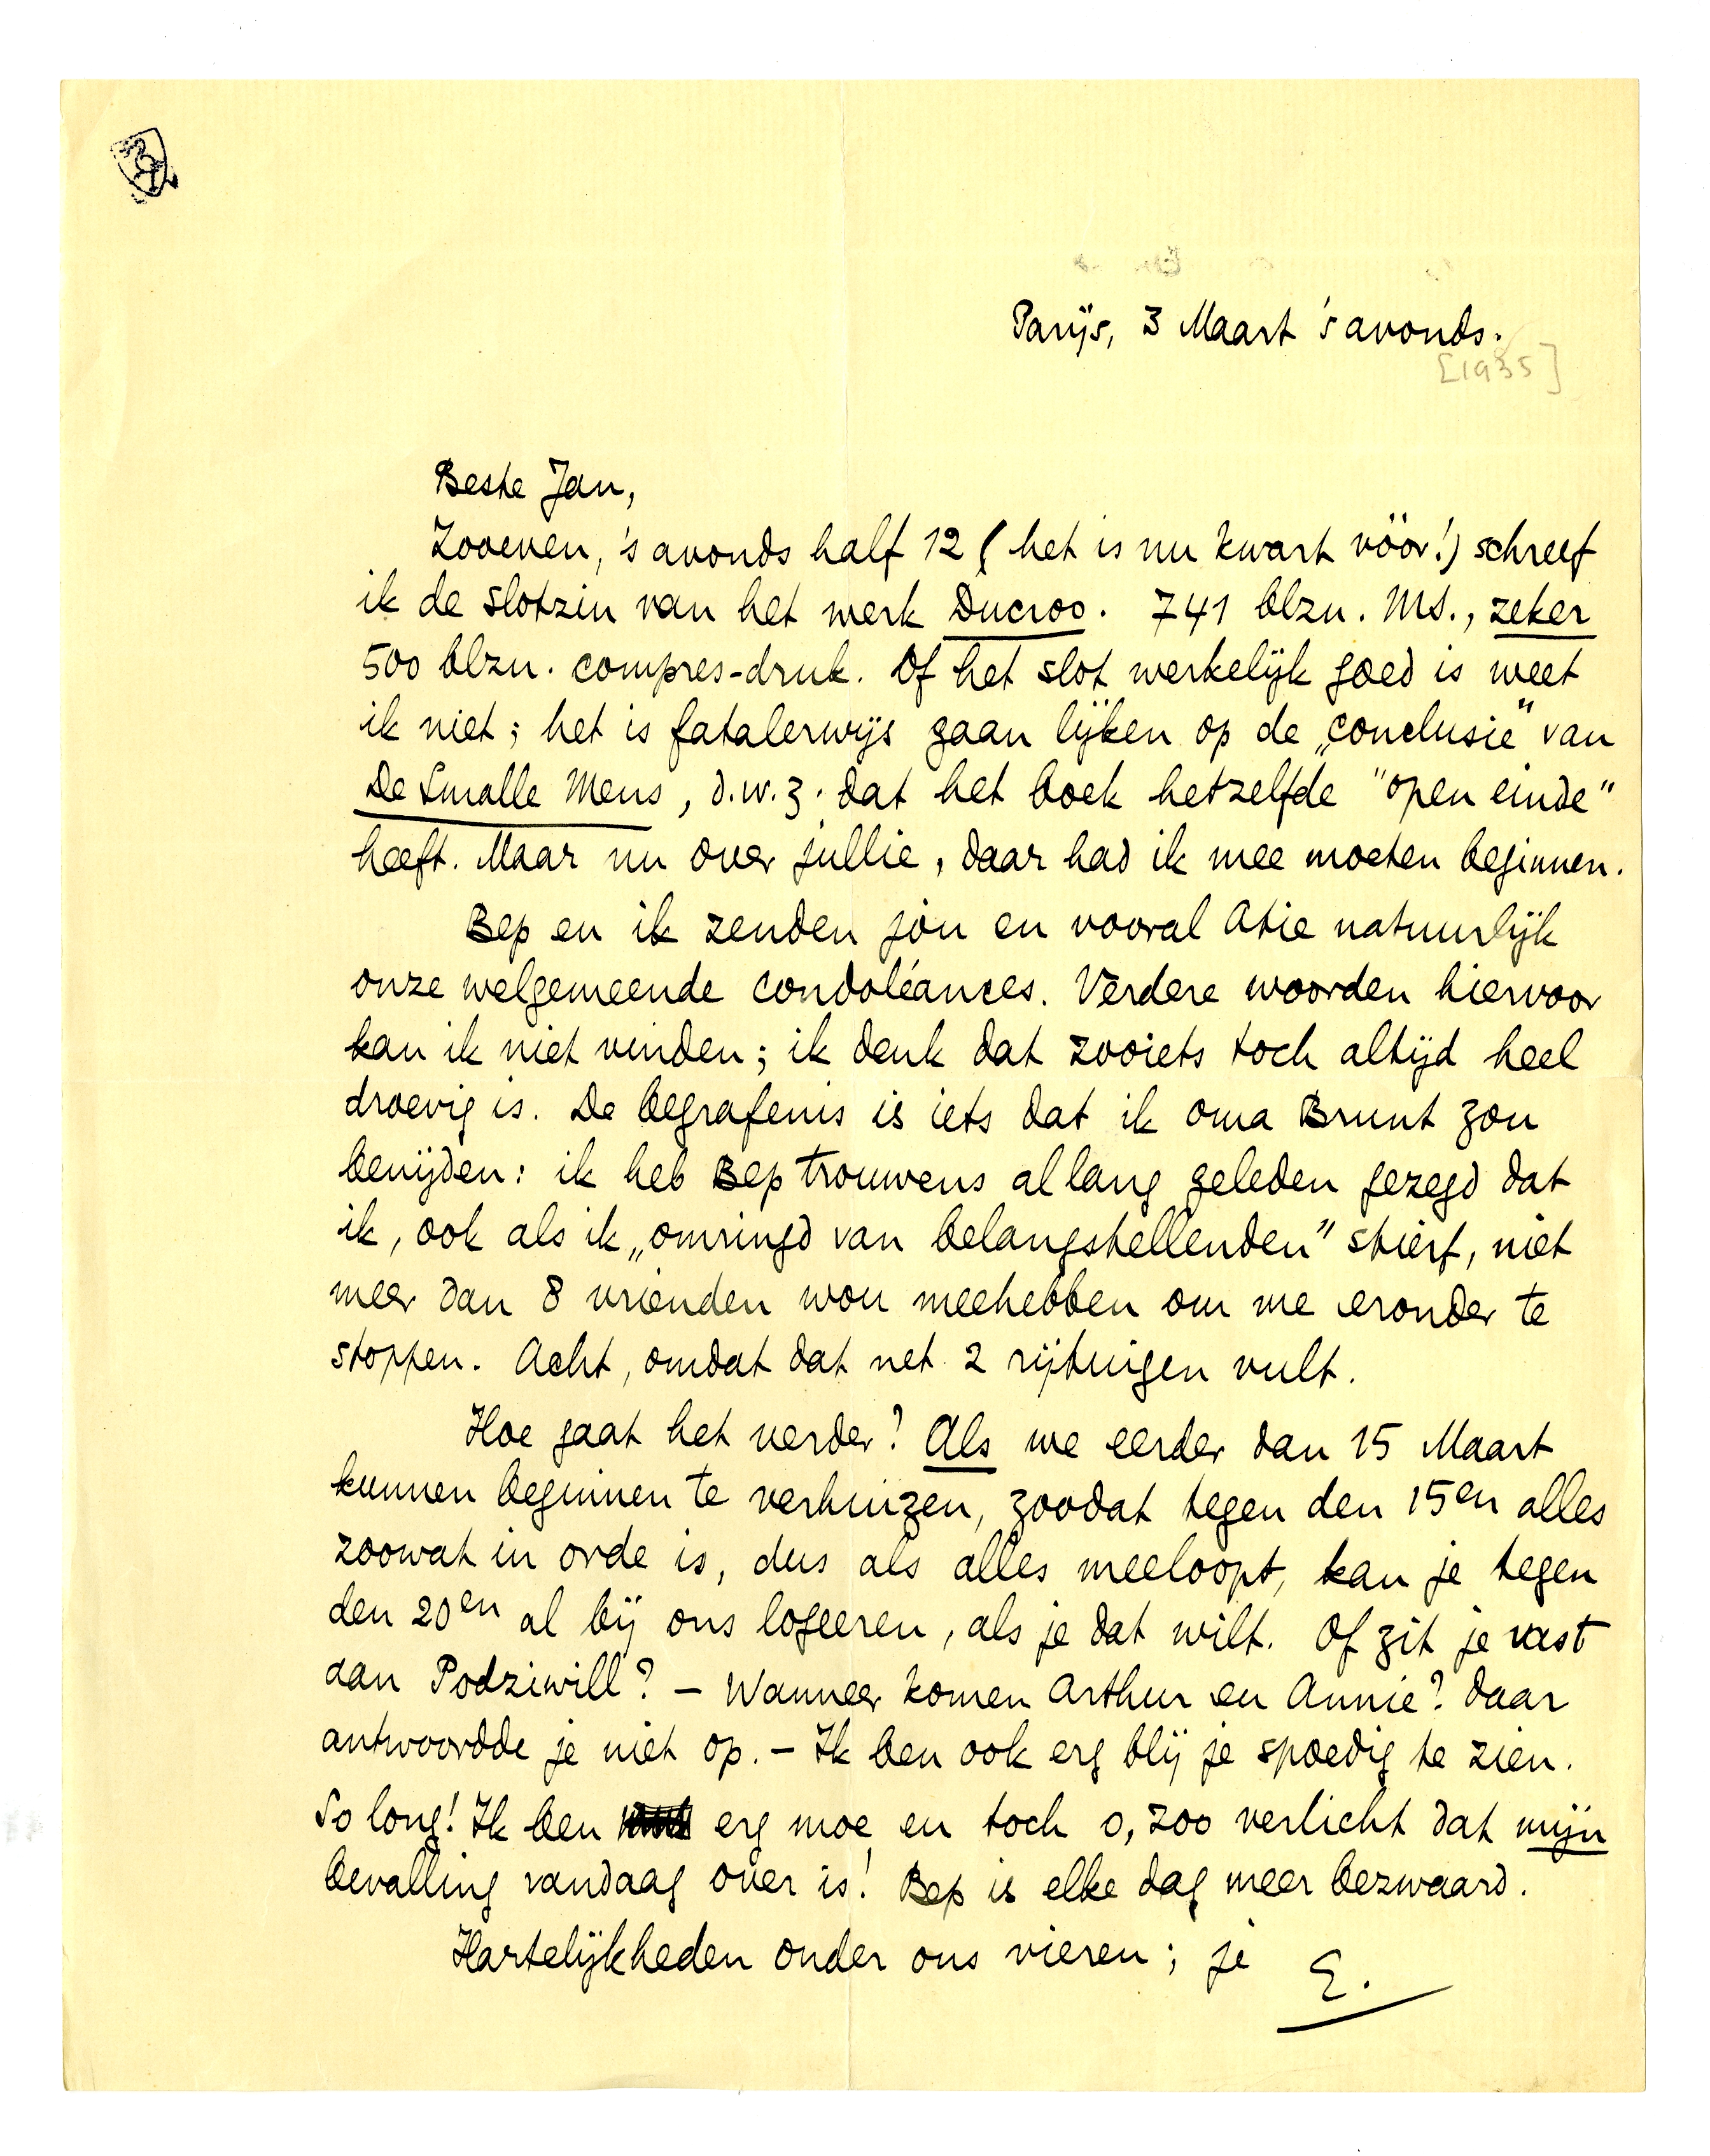 Parijs, 3 Maart 's avonds.
[1935]
Beste Jan,
Zooeven, 's avonds half 12 (het is nu kwart vóór!) schreef
ik de slotzin van het werk Ducroo. 741 blzn. MS., zeker
500 blzn. compres-druk. Of het slot werkelijk goed is weet
ik niet; het is fatalerwijs gaan lijken op de „conclusie" van
De Smalle Mens, d.w.z. dat het boek hetzelfde "open einde"
heeft. Maar nu over jullie, daar had ik mee moeten beginnen.
Bep en ik zenden jou en vooral Atie natuurlijk
onze welgemeende condoléances. Verdere woorden hiervoor
kan ik niet vinden; ik denk dat zooiets toch altijd heel
droevig is. De begrafenis is iets dat ik oma Brunt zou
benijden: ik heb Bep trouwens al lang geleden gezegd dat
ik, ook als ik „omringd van belangstellenden" stierf, niet
meer dan 8 vrienden wou meehebben om me eronder te
stoppen. Acht, omdat dat net 2 rijtuigen vult.
Hoe gaat het verder? Als we eerder dan 15 Maart
kunnen beginnen te verhuizen, zoodat tegen den 15en alles
zoowat in orde is, dus als alles meeloopt, kan je tegen
den 20en al bij ons logeeren, als je dat wilt. Of zit je vast
aan Podziwill? – Wanneer komen Arthur en Annie? daar
antwoordde je niet op. – Ik ben ook erg blij je spoedig te zien.
So long! Ik ben erg moe en toch o, zoo verlicht dat mijn
bevalling vandaag over is! Bep is elke dag meer bezwaard.
Hartelijkheden onder ons vieren; je E.